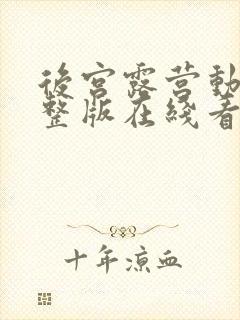 後宮露营動
整版在綫看
十年涼血